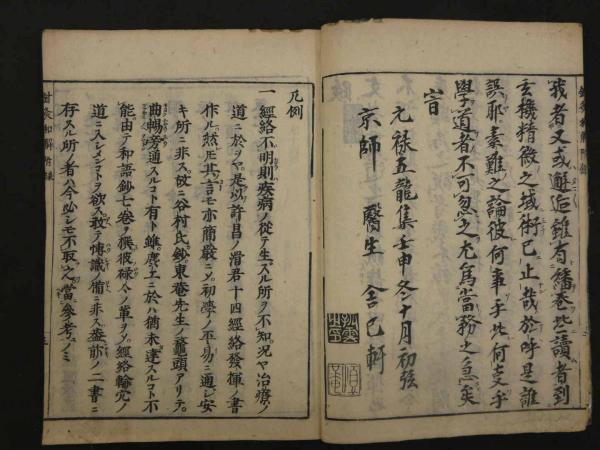 我者又或邂逅雖有繙巻些讀者到
玄機精微之域術已止哉於呼是誰
誤耶素難之論彼何事乎此何支乎
學道者不可忽之尤爲當務之急矣
旹
元禄五龍集壬申冬十月初弦
京師醫生舍已軒
凡例
一經絡不明則疾病ノ從テ生スル所ヲ不知況ヤ治療ノ
道ニ於ヲヤ是以許昌ノ滑君十四經絡發揮ノ書
作ル然𪜈其言モ亦簡嚴ニ〆初學ノ平易ニ通シ安
キ所ニ非ス故ニ谷村氏鈔東菴先生ノ鼇頭アリテ
曲暢旁通スルコト有ト雖塵工ニ於ハ猶未達スルコト不
能由テ和語鈔七巻ヲ撰彼祿今ノ單ヲ〆經絡輸穴ノ
道ニ入シメンコトヲ欲ス敢テ博識ノ備ニ非ス蓋前ノ二書ニ
存スル所ノ者ハ今必シモ不取之當參考ノミ